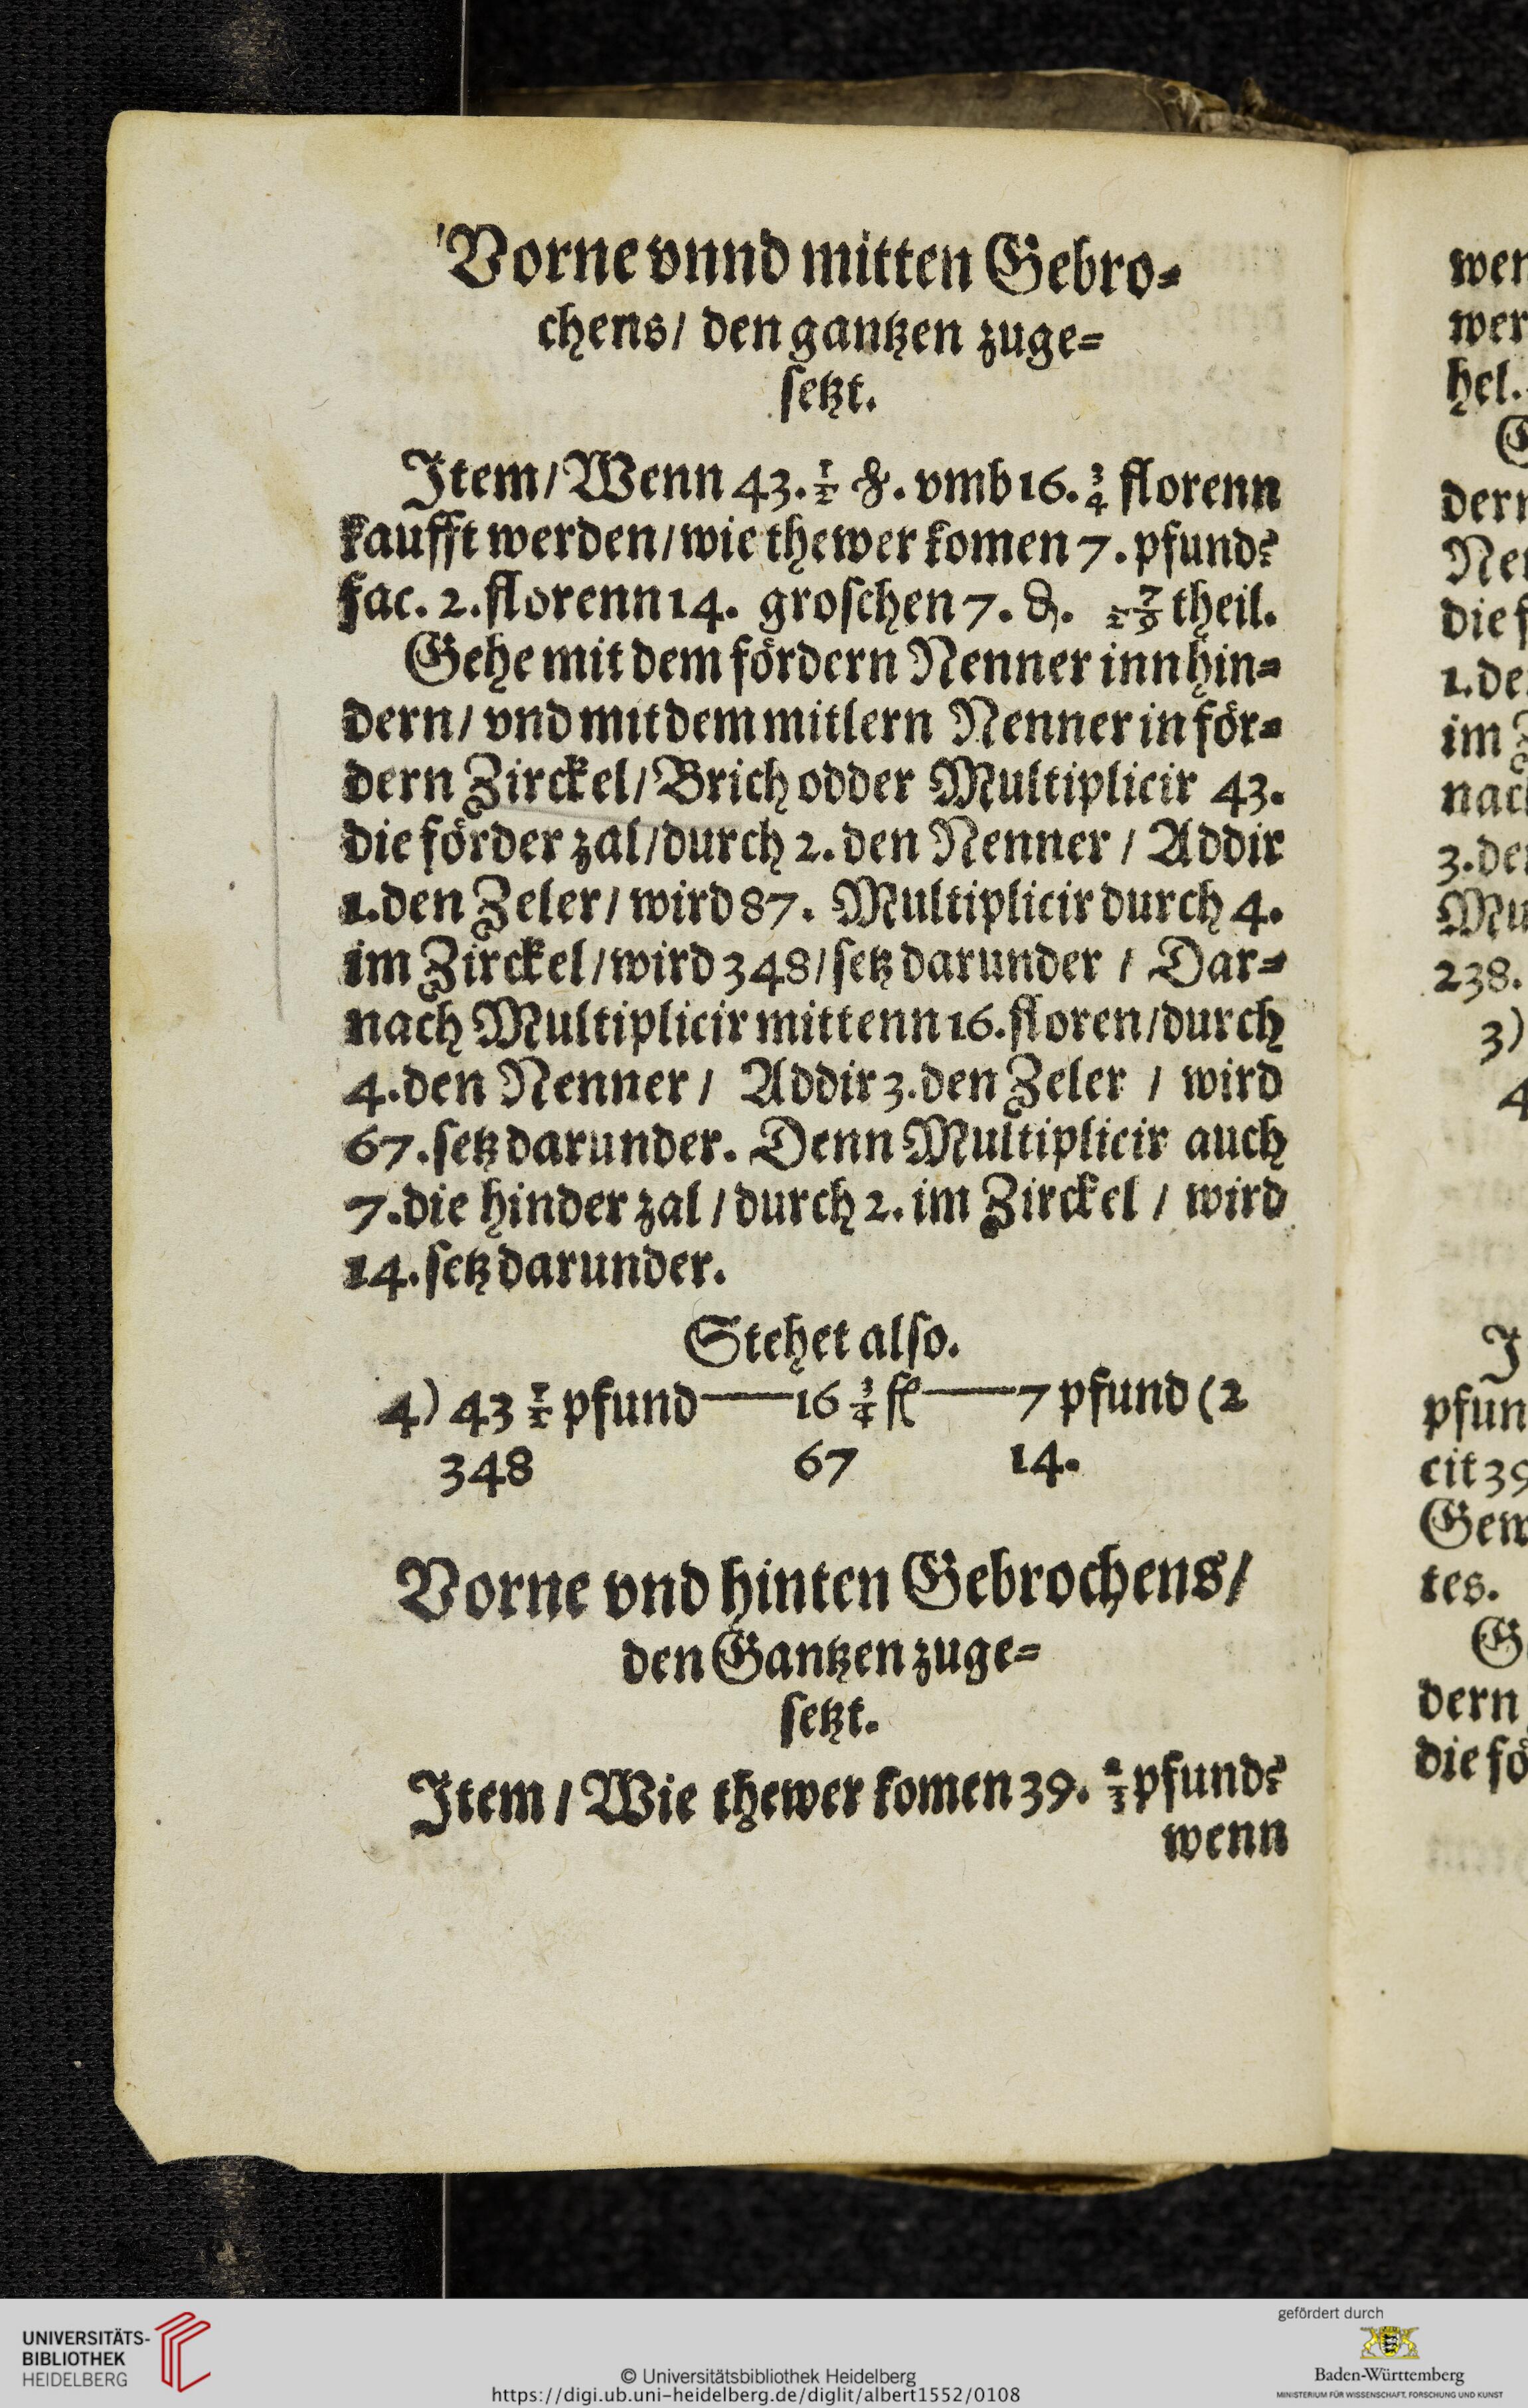 Vorne vnnd mitten Gebro⸗
chens/ den gantzen zuge⸗
setzt.
Item/ Wenn 43. 1/2 ℔. vmb 16. 3/4 florenn
kaufft werden/ wie thewer komen 7. pfund?
fac. 2. florenn 14. groschen 7. ₰. 7/29 theil.
Gehe mit dem fördern Nenner inn hin⸗
dern/ vnd mit dem mitlern Nenner in för⸗
dern Zirckel/ Brich odder Multiplicir 43.
die förder zal/ durch 2. den Nenner / Addir
1. den Zeler/ wird 87. Multiplicir durch 4.
im Zirckel/ wird 348/ setz darunder / Dar⸗
nach Multiplicir mittenn 16. floren/ durch
4. den Nenner/ Addir 3. den Zeler / wird
67. setz darunder. Denn Multiplicir auch
7. die hinder zal / durch 2. im Zirckel / wird
14. setz darunder.
Stehet also.
4) 43 1/2 pfund——16 3/4 fl——7 pfund (2
348 67 14.
Vorne vnd hinten Gebrochens/
den Gantzen zuge⸗
setzt.
Item / Wie thewer komen 39. 2/3 pfund?
wenn
hel.
im
238.
3)
tes.
dern
UNIVERSITÄTS-
BIBLIOTHEK
HEIDELBERG
© Universitätsbibliothek Heidelberg
https://digi.ub.uni-heidelberg.de/diglit/albert1552/0108
gefördert durch
Baden-Württemberg
MINISTERIUM FÜR WISSENSCHAFT, FORSCHUNG UND KUNST